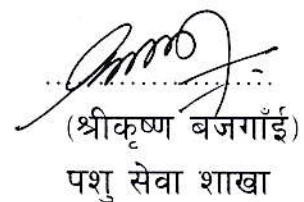 (श्रीकृष्ण बजगाँई)
पशु सेवा शाखा